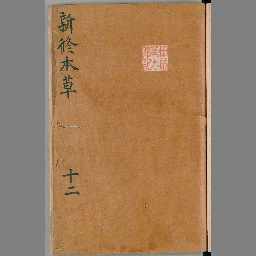 新修本草
十二